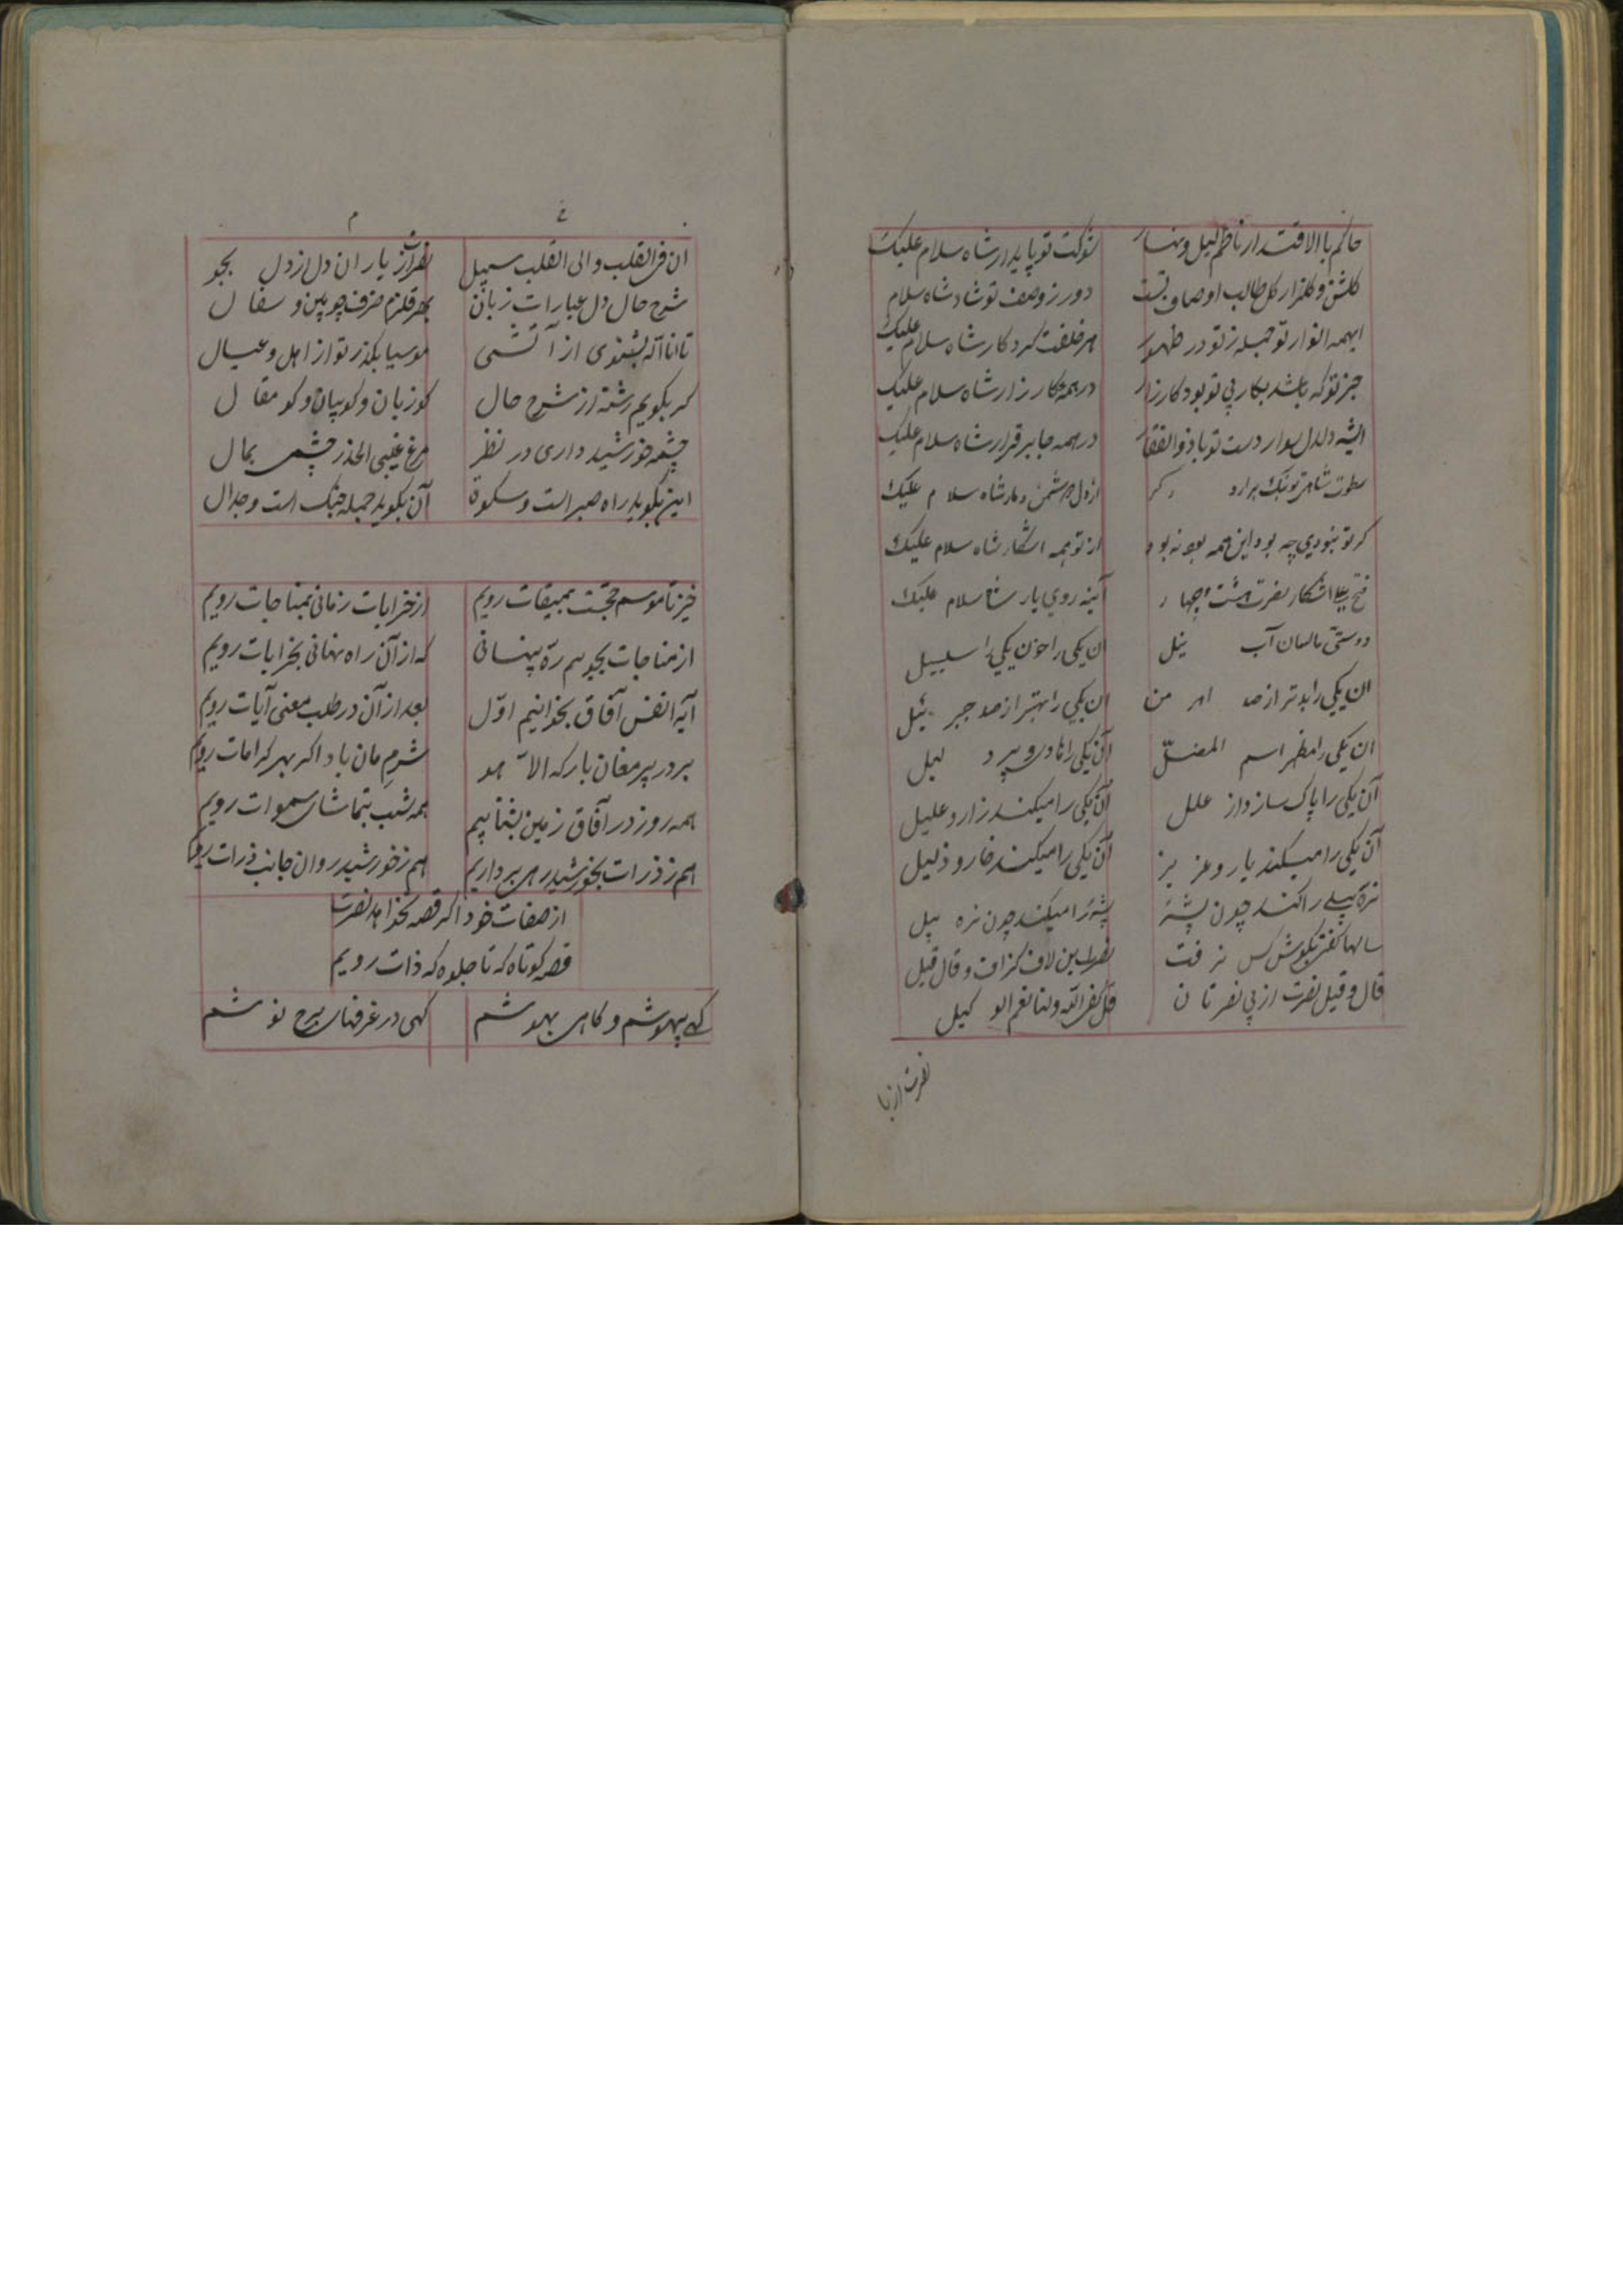 حاکم با الاقتدار ناظم لیل و نهار شوکت تو پایدار شاه سلام علیک
گلشن و گلزار کل طالب اوصاف تست دور ز وصف تو شاد شاه سلام
اینهمه انوار تو جمله ز تو در ظهور هر خلقت کردگار شاه سلام علیک
جز تو که باشد بکار پی تو بود کارزار در همه کارزار شاه سلام علیک
ایشه دلدل سوار دست تو با ذوالفقار در همه جا برقرار شاه سلام علیک
سطوت شاهی تو برارد از دل دشمن دمار شاه سلام علیک
گر تو نبودی چه بود این همه بود نه بود از تو همه اشکار شاه سلام علیک
اشکار نصرت هشت و چهار آینه روی یار شاه سلام علیک
دوستی آب نیل ان یکی را خون یکی را سلسبیل
ان یکی را بدتر از صد اهر من ان یکی را بهتر از صد جبرئیل
ان یکی را مظهر اسم المضلّ آن یکی را هادی و پیر و لیل
آن یکی را پاک سازد از علل آن یکی را میکند زار و علیل
آن یکی را میکند یار و عزیز آن یکی را میکند خار و ذلیل
نره پیلی را کند چون پشهٔ پشهٔ را میکند چون نره پیل
سالها گفتی بگوش کس نرفت نصرت این لاف گزاف و قال قیل
قال و قیل نصرت از پی نصرتان قل کفی الله ولنا نعم الوکیل
نصرت از یا
خ م
ان فی القلب والی القلب سبیل نصرت از یاران دل از دل بجو
شرح حال دل عبارات زبان بهر قلزم ظرف چوبین و سفال
تا انا الله بشنوی از آتشی موسیا بگذر تو از اهل و عیال
گر بگویم رشته از شرح حال کو زبان و کو بیان و کو مقال
چشمه خورشید داری در نظر مرغ غیبی الحذر چشمی بمال
این بگوید راه صبر است و سکوة آن بگوید جمله جنگ است و جدال
خیز تا موسم حجت بمیقات رویم از خرابات زمانی بمناجات رویم
از مناجات بجویم ره پنهانی که از آن راه نهانی بخرابات رویم
آیه انفس آفاق بخوانیم اوّل بعد از آن در طلب معنی آیات رویم
بر در پیر مغان بارکه الا هو شرم مان باد اگر بهر کرامات رویم
همه روز در آفاق زمین بشتابیم همه شب بتماشای سموات رویم
هم ز ذرات بخورشید رهی برداریم هم ز خورشید روان جانب ذرات رویم
از صفات خود اگر قصه بخواهد نصرت
قصه کوتاه که تا جلوه که ذات رویم
گهی بیهوشم و گاهی بهوشم گهی در غرفهای برج نوشم